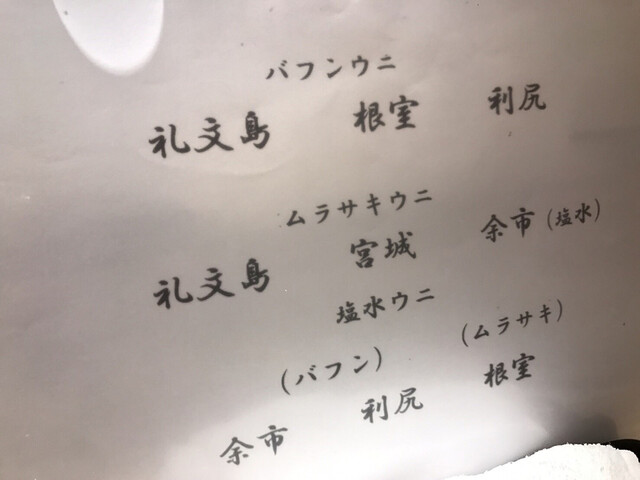 バフンウニ
礼文島 根室 利尻
ムラサキウニ
礼文島 宮城 余市(塩水)
塩水ウニ
(バフン) (ムラサキ)
余市 利尻 根室